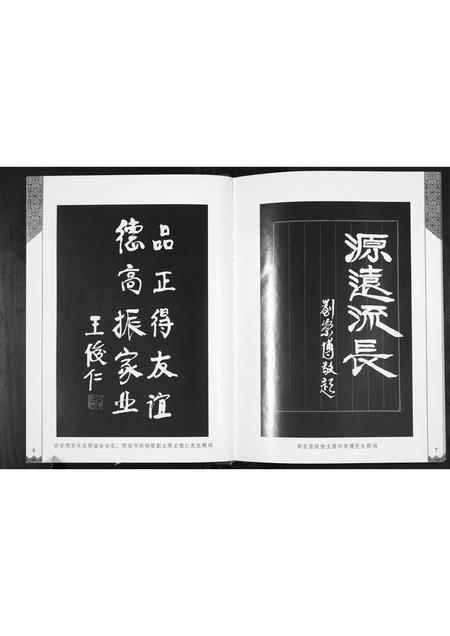 品正得友谊
德高振家业
王俊仁
西安周至卡克斯谊会会长、西安市政协原副主席王俊仁先生题词
6
源遠流長
劉崇博敬題
周至县政协主席刘崇博先生题词
7